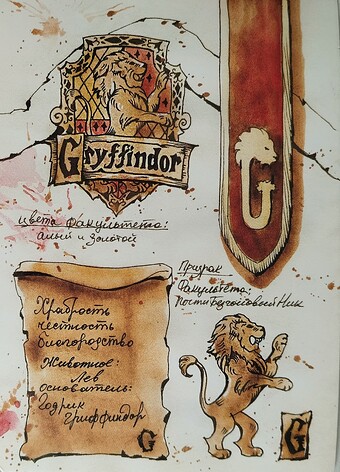 Gryffindor
G
цвета факультета:
алый и золотой
Призрак
факультета:
Почти Безголовый Ник
Храбрость
честность
благородство
Животное:
Лев
основатель:
Годрик
Гриффиндор
G
G